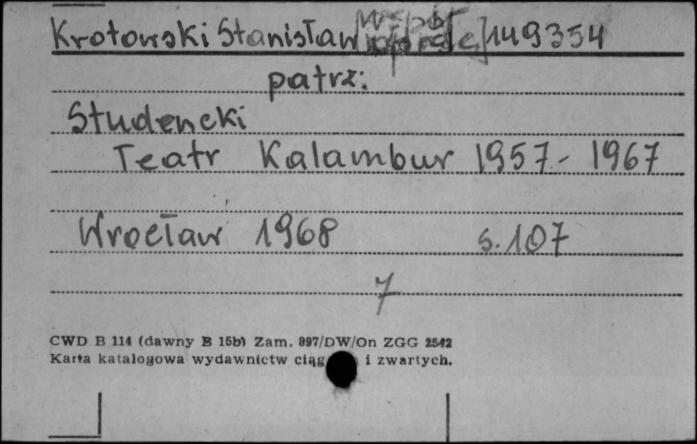 Krotowski Stanisław [współ 149354
patrz:
Studencki
Teatr Kalambur 1957- 1967
Wrocław 1968 s. 107
7
CWD B 114 (dawny B 15b) Zam. 897/DW/On ZGG 2542
Karta katalogowa wydawnictw ciąg i zwartych.